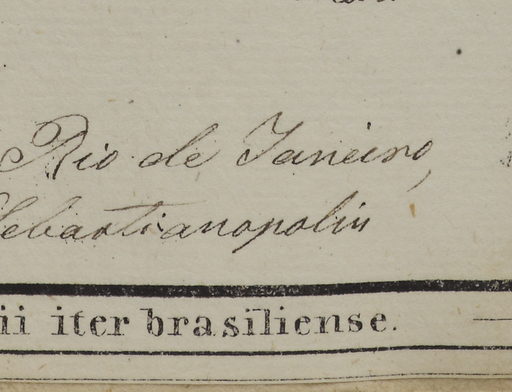 Rio de Janeiro,
Sebastianopolis
ii iter brasiliense.